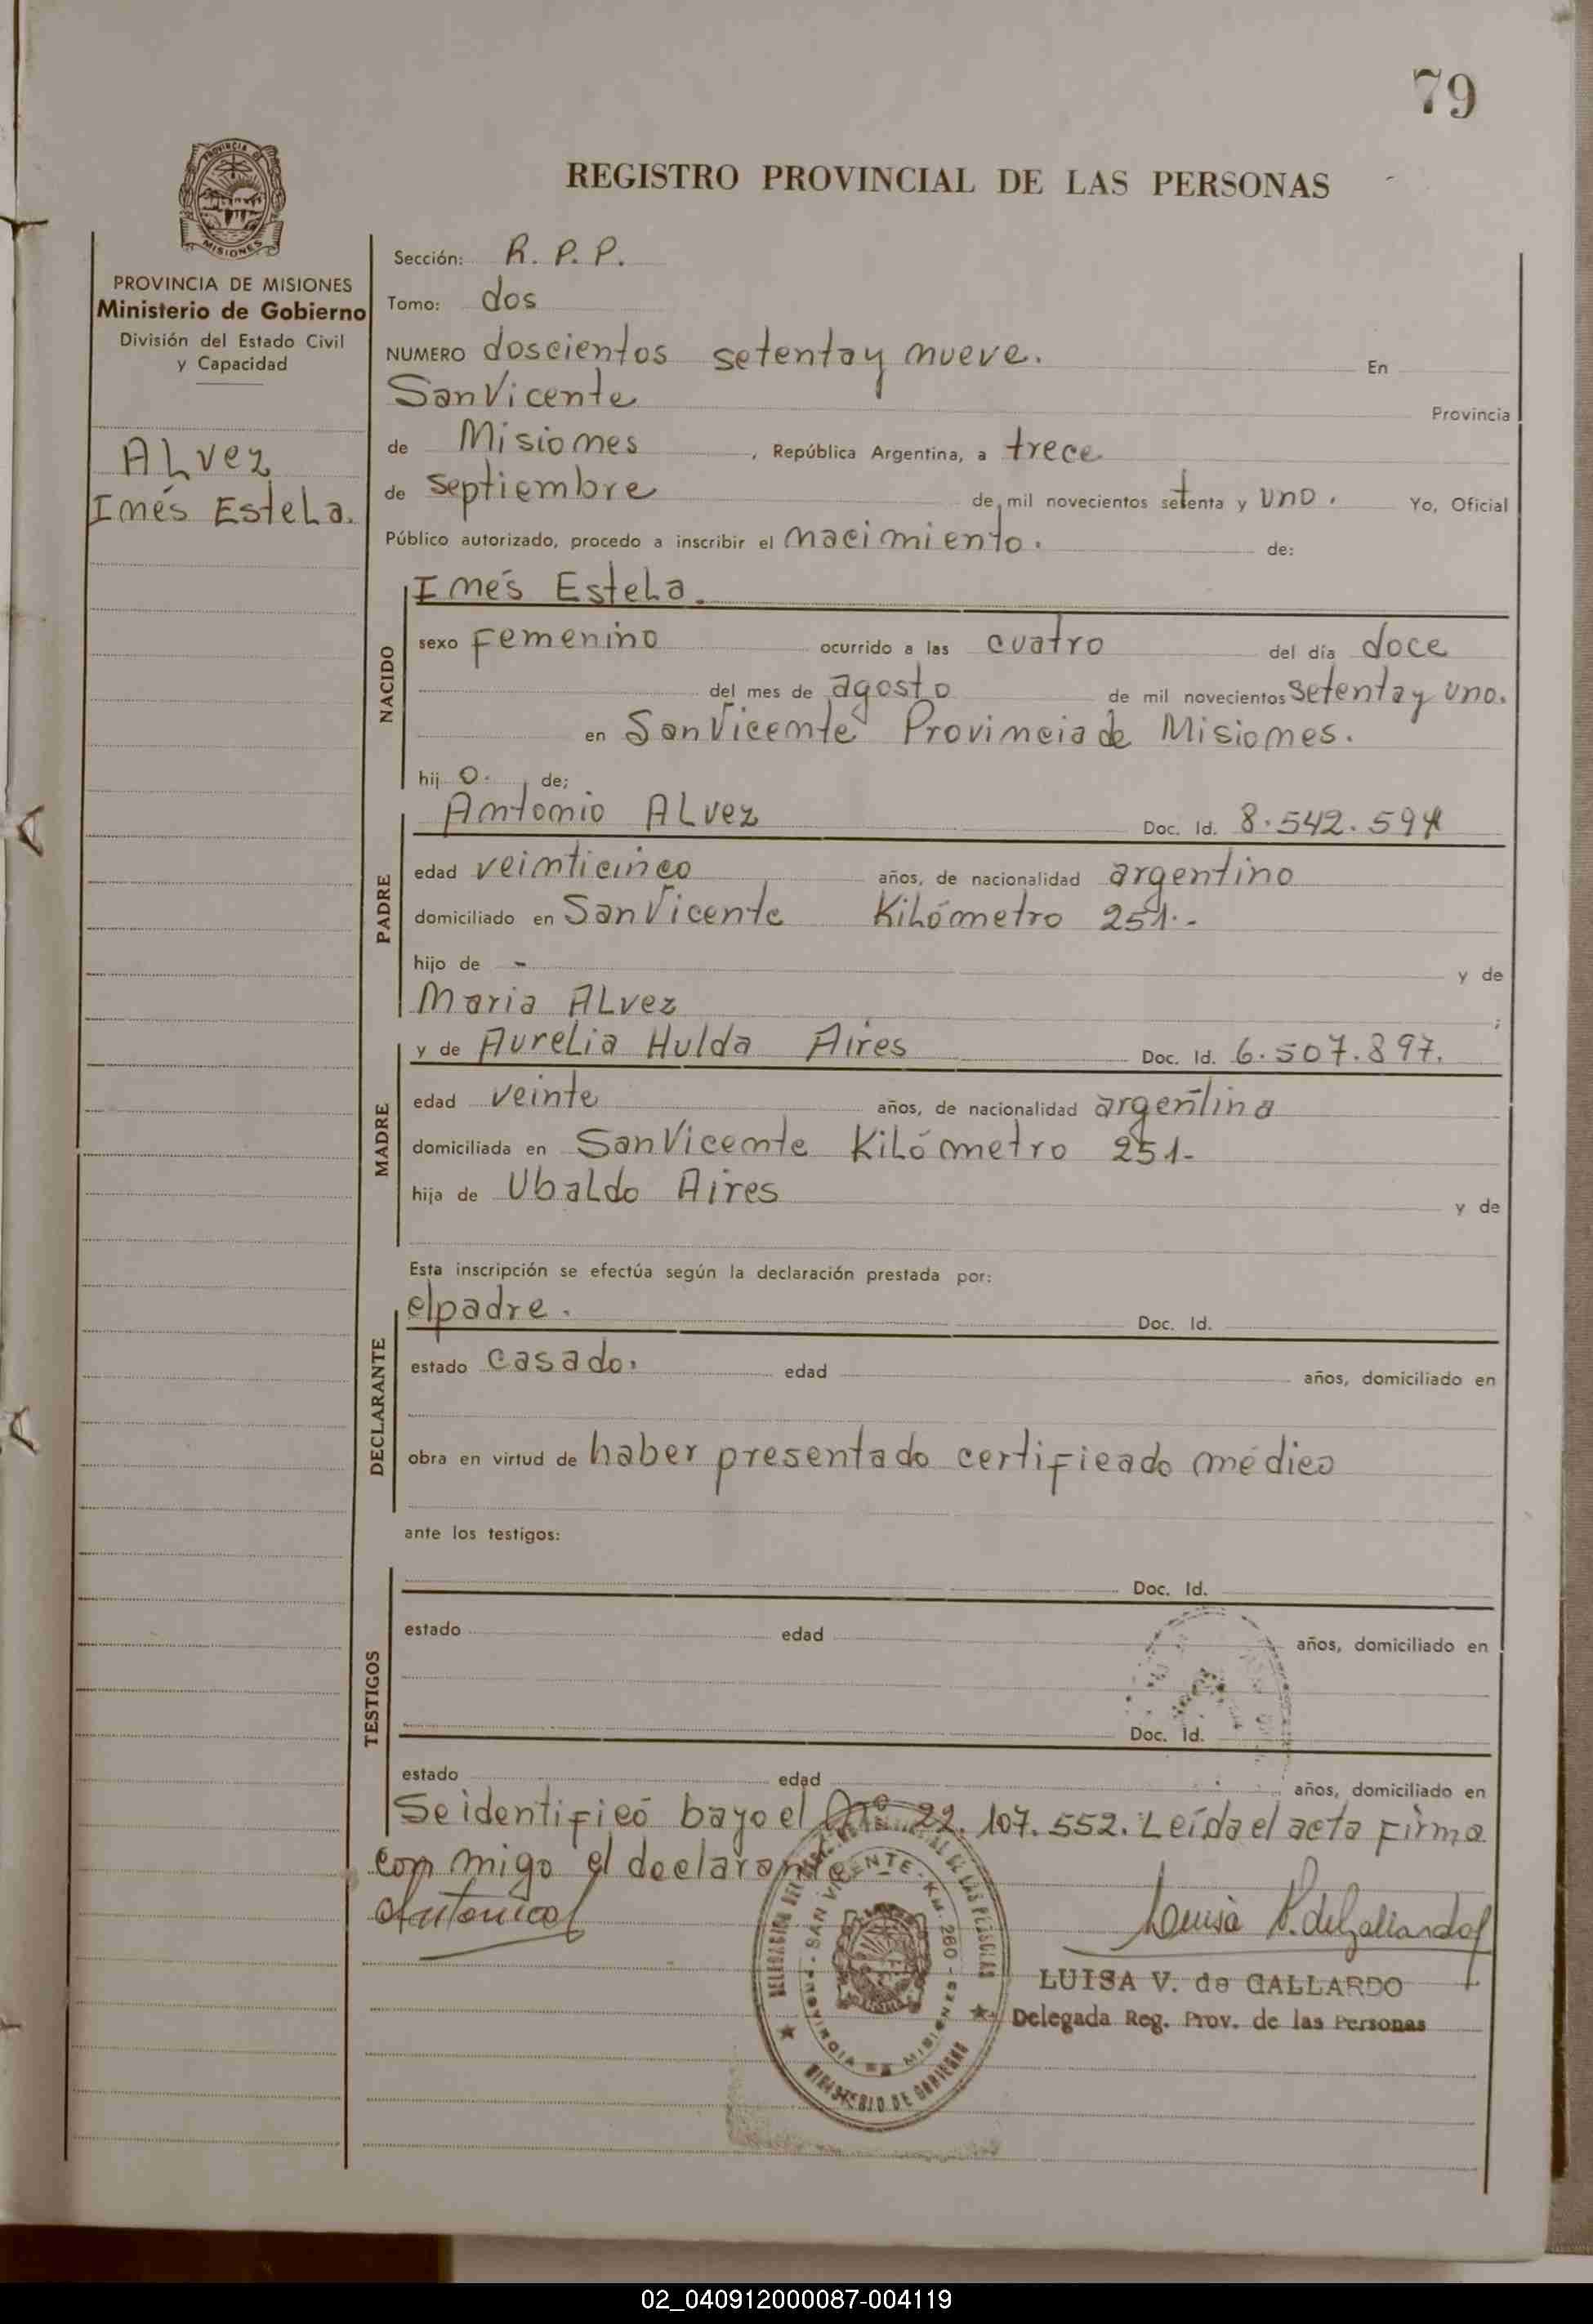 79
REGISTRO PROVINCIAL DE LAS PERSONAS
PROVINCIA DE
MISIONES
PROVINCIA DE MISIONES
Ministerio de Gobierno
División del Estado Civil
y Capacidad
ALvez
Inés Estela.
Sección: R. P. P.
Tomo: dos
NUMERO doscientos setenta y nueve. En
San Vicente Provincia
de Misiones , República Argentina, a trece
de septiembre de mil novecientos setenta y uno. Yo, Oficial
Público autorizado, procedo a inscribir el nacimiento. de:
NACIDO
Inés Estela.
sexo Femenino ocurrido a las cuatro del día doce
del mes de agosto de mil novecientos setenta y uno.
en San Vicente Provincia de Misiones.
hij o. de;
PADRE
Antonio ALvez Doc. Id. 8.542.594
edad veinticinco años, de nacionalidad argentino
domiciliado en San Vicente Kilómetro 251.-
hijo de - y de
Maria ALvez ;
MADRE
y de Aurelia Hulda Aires Doc. Id. 6.507.897.
edad veinte años, de nacionalidad argentina
domiciliada en San Vicente Kilómetro 251-
hija de Ubaldo Aires y de
Esta inscripción se efectúa según la declaración prestada por:
DECLARANTE
el padre. Doc. Id.
estado casado. edad años, domiciliado en
obra en virtud de haber presentado certificado médico
ante los testigos:
TESTIGOS
Doc. Id.
estado edad años, domiciliado en
Doc. Id.
estado edad años, domiciliado en
Se identificó bayo el Nº 22.107.552. Leída el acta firma
con migo el declarante
Luisa V. de Gallardo
LUISA V. de GALLARDO
Delegada Reg. Prov. de las Personas
SAN VICENTE - KM. 260 - MISIONES
PROVINCIA DE
MINISTERIO DE GOBIERNO
02_040912000087-004119